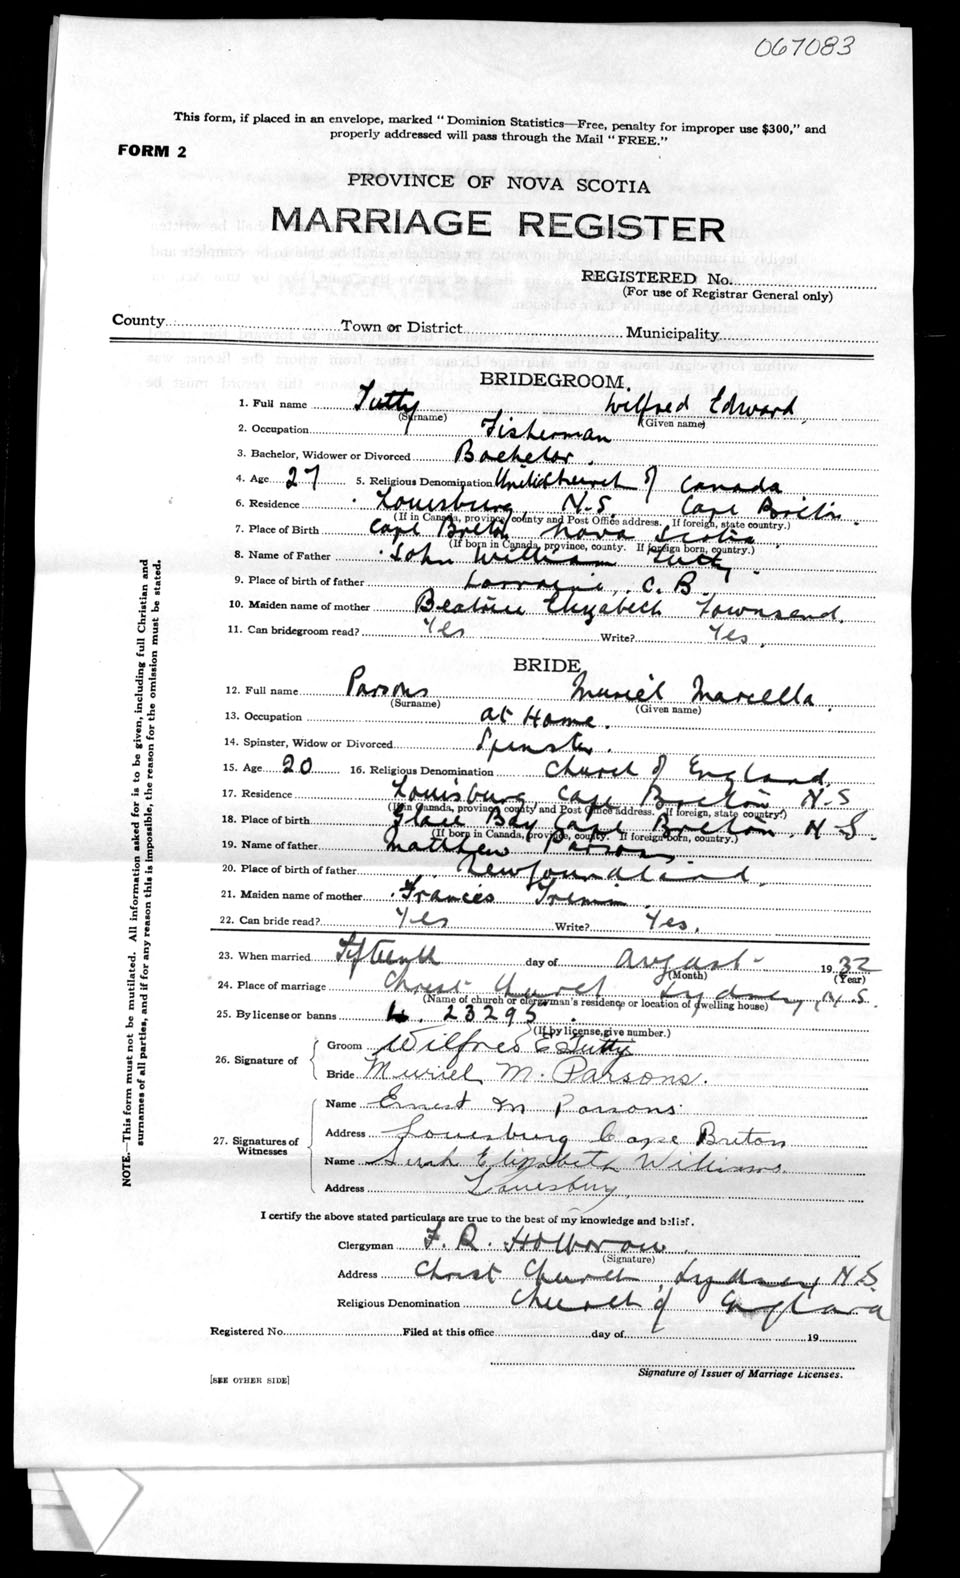 067083
This form, if placed in an envelope, marked "Dominion Statistics—Free, penalty for improper use $300," and
properly addressed will pass through the Mail "FREE."
FORM 2
PROVINCE OF NOVA SCOTIA
MARRIAGE REGISTER
REGISTERED No.
(For use of Registrar General only)
County Town or District Municipality
BRIDEGROOM.
1. Full name Tutty Wilfred Edward
(Surname) (Given name)
2. Occupation Fisherman
3. Bachelor, Widower or Divorced Bachelor.
4. Age 27 5. Religious Denomination United Church of Canada
6. Residence Louisburg N.S. Cape Breton.
(If in Canada, province, county and Post Office address. If foreign, state country.)
7. Place of Birth Cape Breton Nova Scotia
(If born in Canada, province, county. If foreign born, country.)
8. Name of Father John William Tutty
9. Place of birth of father Lorraine, C.B.
10. Maiden name of mother Beatrice Elizabeth Townsend.
11. Can bridegroom read? Yes Write? Yes.
BRIDE
12. Full name Parsons Muriel Marcella
(Surname) (Given name)
13. Occupation at Home.
14. Spinster, Widow or Divorced Spinster.
15. Age 20 16. Religious Denomination Church of England
17. Residence Louisburg Cape Breton N-S
(If in Canada, province, county and Post Office address. If foreign, state country.)
18. Place of birth Glace Bay Cape Breton, N-S.
(If born in Canada, province, county. If foreign born, country.)
19. Name of father Matthew Parsons
20. Place of birth of father Newfoundland.
21. Maiden name of mother Frances
22. Can bride read? Yes Write? Yes.
23. When married Fifteenth day of August 19 32
(Month) (Year)
24. Place of marriage Christ Church Sydney N.S.
(Name of church or clergyman's residence or location of dwelling house)
25. By license or banns L. 23295
(If by license, give number.)
26. Signature of Groom Wilfred E Tutty
Bride Muriel M. Parsons.
27. Signatures of Witnesses Name Ernest M Parsons
Address Louisburg Cape Breton
Name Sarah Elizabeth Williams.
Address Louisburg
I certify the above stated particulars are true to the best of my knowledge and belief.
Clergyman F. R. Holborow
(Signature)
Address Christ Church, Sydney N.S.
Religious Denomination Church of England
Registered No. Filed at this office day of 19
Signature of Issuer of Marriage Licenses.
[SEE OTHER SIDE]
NOTE.—This form must not be mutilated. All information asked for is to be given, including full Christian and
surnames of all parties, and if for any reason this is impossible, the reason for the omission must be stated.